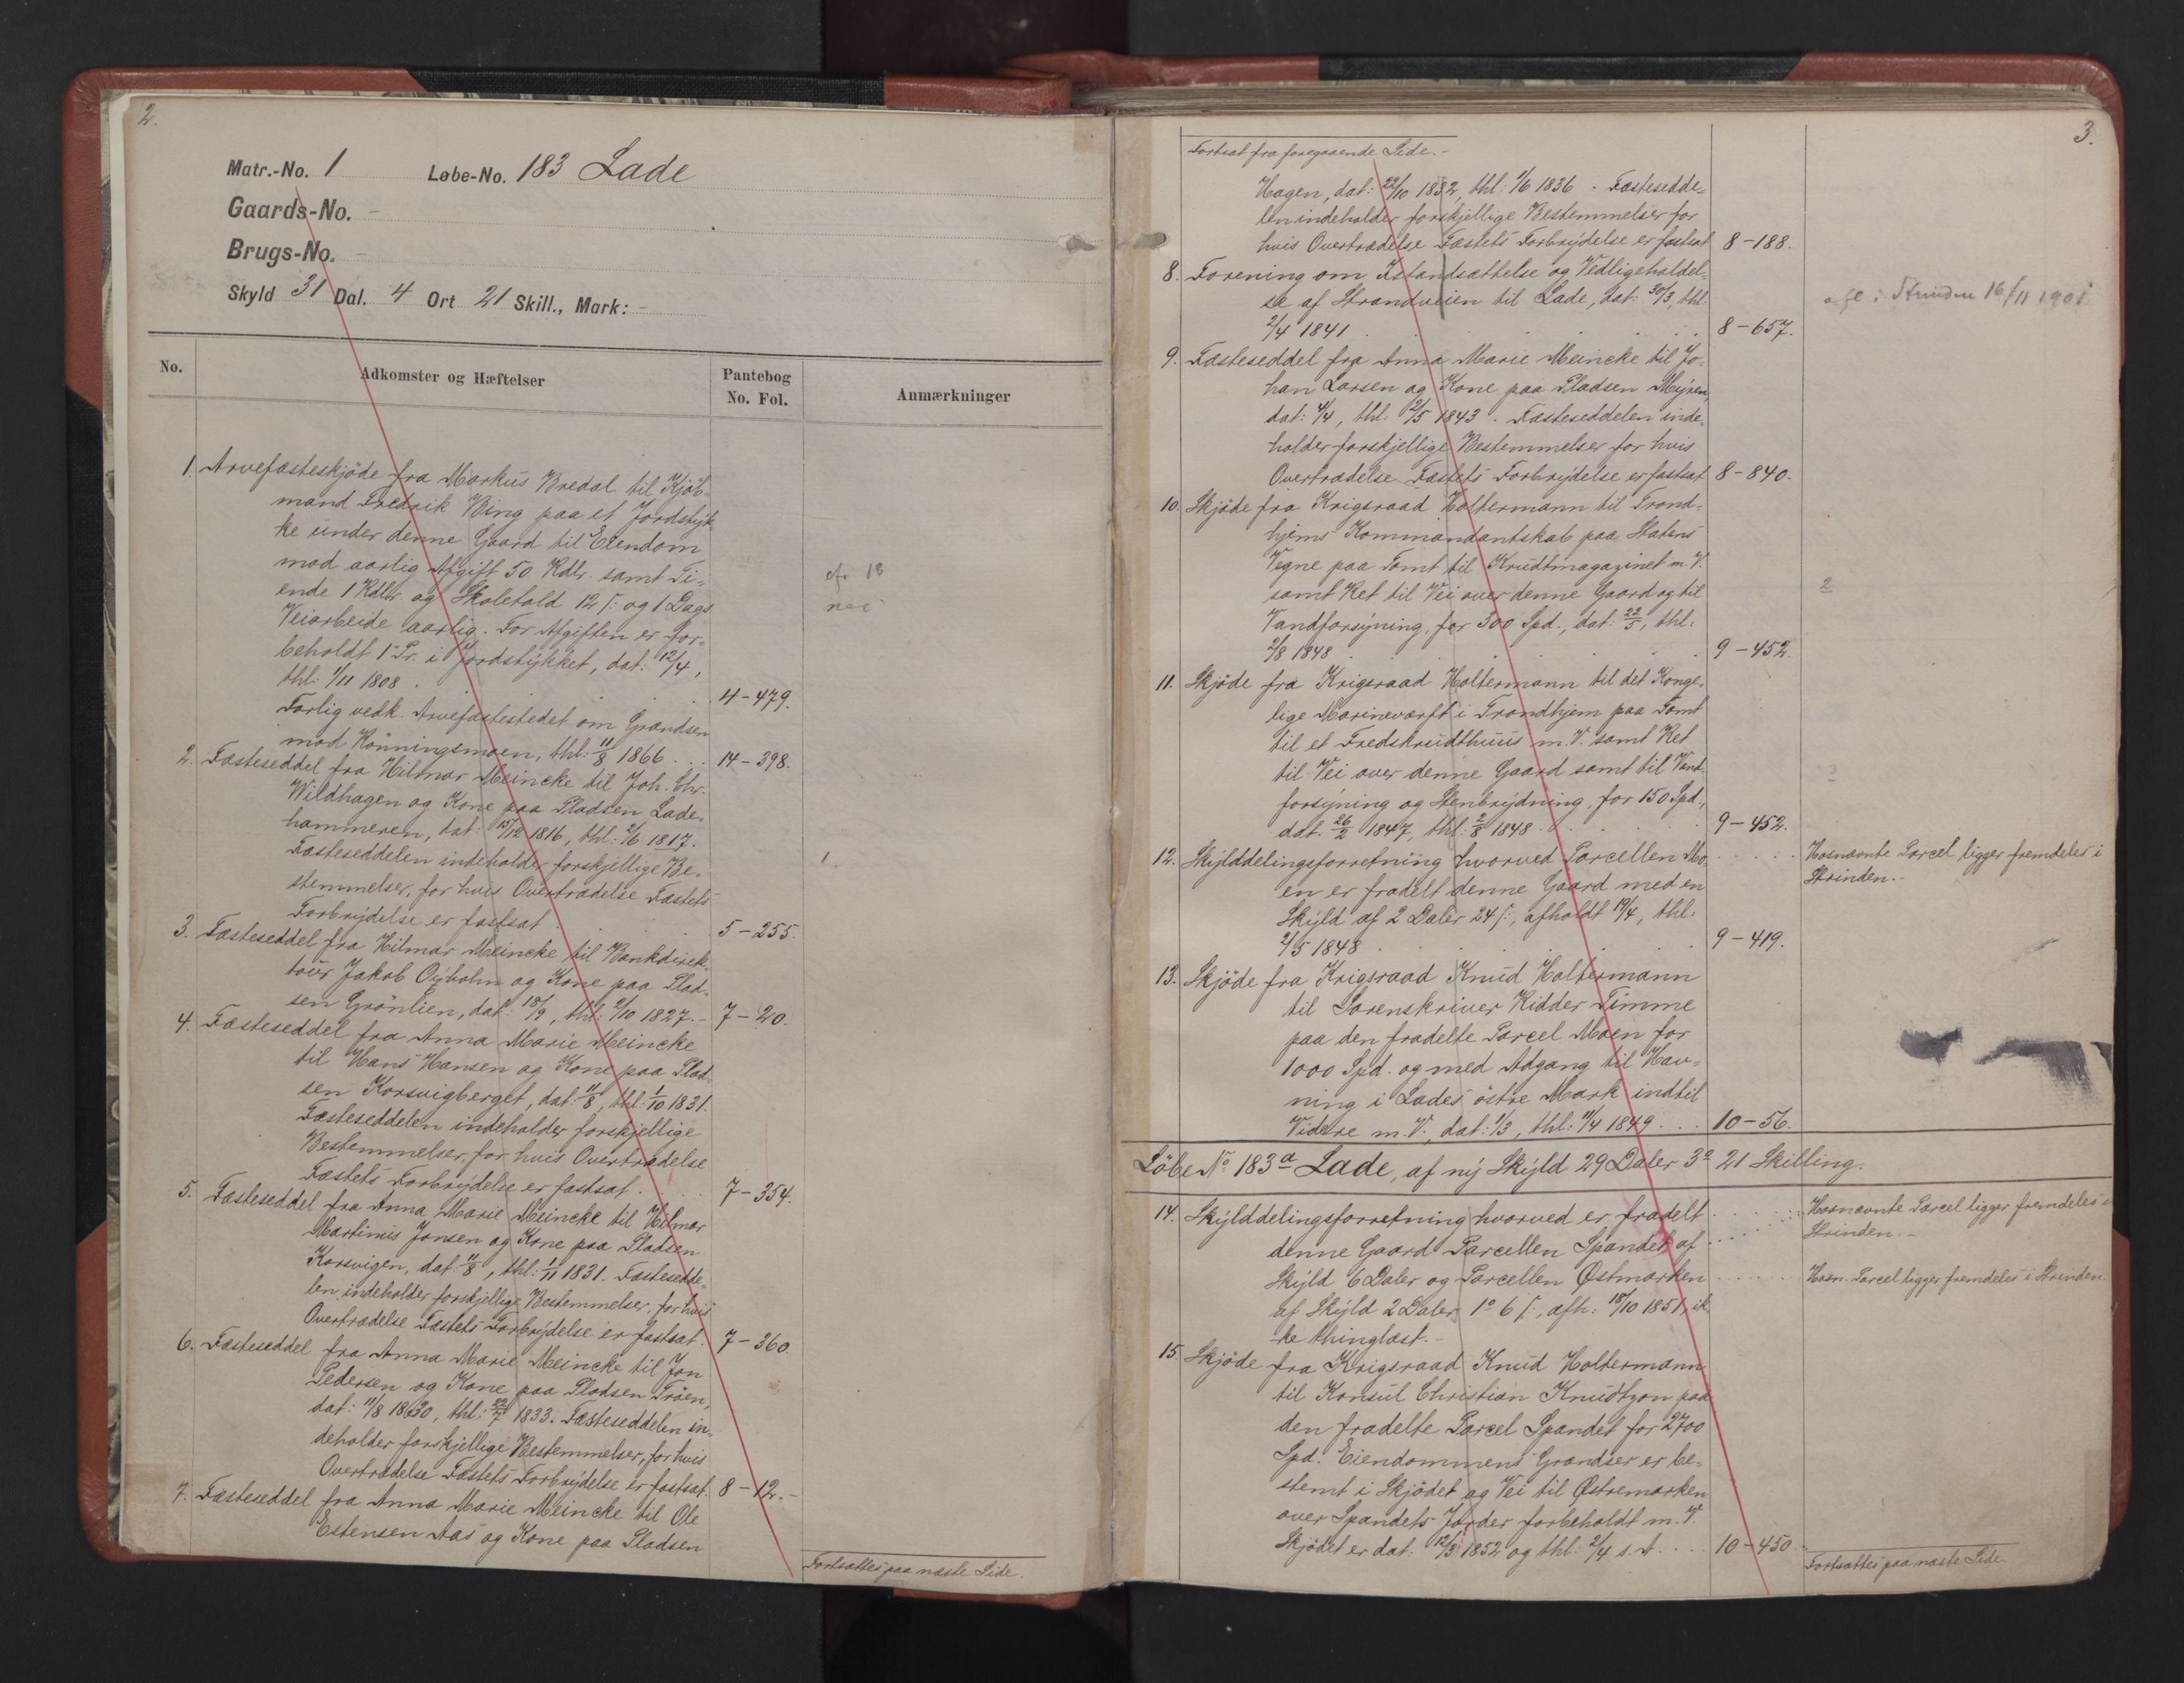 2.
Matr.-No. 1 Løbe-No. 183 Lade
Gaards-No. -
Brugs-No. -
Skyld 31 Dal. 4 Ort 21 Skill., Mark: -
No. Adkomster og Hæftelser Pantebog No. Fol. Anmærkninger
1. Arvefæsteskjöde fra Markus Bredal til Kjöb-
mand Fredrik Bing paa et Jordstyk-
ke under denne Gaard til Eiendom
mod aarlig Afgift 50 Rdlr. samt Ti-
ende 1 Rdlr. og Skolehold 12 ſ: og 1 Dags
Veiarbeide aarlig. For Afgiften er for-
beholdt 1 Pr. i Jordstykket, dat: 12/4,
thl: 1/11 1808 . . . 4-479.
cfr 18
Forlig vedk. Arvefæstestedet om Grændsen
mod Rönningsmoen, thl: 11/8 1866 . . . 14-398.
2. Fæsteseddel fra Hilmar Meincke til Joh. Chr.
Wildhagen og Kone paa Pladsen Lade-
hammeren, dat: 15/12 1816, thl: 2/6 1817.
Fæsteseddelen indeholder forskjellige Be-
stemmelser, for hvis Overtrædelse Fæstets
Forbrydelse er fastsat . . . 5-255.
1.
3. Fæsteseddel fra Hilmar Meincke til Bankdirek-
tour Jakob Oyholm og Kone paa Plad-
sen Grönlien, dat: 18/9, thl: 2/10 1827.- 7-20.
4. Fæsteseddel fra Anna Marie Meincke
til Hans Hansen og Kone paa Plad-
sen Korsvigberget, dat: 11/8, thl: 1/10 1831.
Fæsteseddelen indeholder forskjellige
Bestemmelser, for hvis Overtrædelse
Fæstets Forbrydelse er fastsat . . . 7-354.
5. Fæsteseddel fra Anna Marie Meincke til Hilmar
Martinus Jonsen og Kone paa Pladsen
Korsvigen, dat: 11/8, thl: 1/11 1831. Fæstesedde-
len indeholder forskjellige Bestemmelser, for hvis
Overtrædelse Fæstets Forbrydelse er fastsat. 7-360.
6. Fæsteseddel fra Anna Marie Meincke til Jon
Pedersen og Kone paa Pladsen Tröen,
dat: 11/8 1830, thl: 22/7 1833. Fæsteseddelen in-
deholder forskjellige Bestemmelser, for hvis
Overtrædelse Fæstets Forbrydelse er fastsat. 8-12.-
7. Fæsteseddel fra Anna Marie Meincke til Ole
Estensen Aas og Kone paa Pladsen
Fortsættes paa næste Side.
3.
Fortsat fra foregaaende Side.-
Hagen, dat: 22/10 1832, thl: 1/6 1836 . Fæstesedde-
len indeholder forskjellige Bestemmelser for
hvis Overtrædelse Fæstets Forbrydelse er fastsat 8-188.
8. Forening om Istandsættelse og Vedligeholdel-
se af Strandveien til Lade, dat: 30/3, thl:
2/4 1841 . . . 8-657.
Strinden 16/11 1901
9. Fæsteseddel fra Anna Marie Meincke til Jo-
han Larsen og Kone paa Pladsen Myren,
dat: 4/4, thl: 2/5 1843 . Fæsteseddelen inde-
holder forskjellige Bestemmelser for hvis
Overtrædelse Fæstets Forbrydelse er fastsat 8-840.
10. Skjöde fra Krigsraad Holtermann til Trond-
hjems Kommandantskab paa Statens
Vegne paa Tomt til Krudtmagazinet m.V.
samt Ret til Vei over denne Gaard og til
Vandforsyning, for 300 Spd., dat: 22/5, thl:
2/8 1848 . . . 9-452.
2
11. Skjöde fra Krigsraad Holtermann til det Konge-
lige Marineværft i Trondhjem paa Tomt
til et Fredskrudthuus m.V. samt Ret
til Vei over denne Gaard samt til Vand-
forsyning og Stenbrydning, for 150 Spd.,
dat: 26/2 1847, thl: 2/8 1848 . . . 9-452.
3
12. Skylddelingsforretning hvorved Parcellen Mo-
en er fradelt denne Gaard med en
Skyld af 2 Daler 24 ſ:, afholdt 19/4, thl:
2/5 1848 . . . 9-419.
Hosnævnte Parcel ligger fremdeles i
Strinden.-
13. Skjöde fra Krigsraad Knud Holtermann
til Sorenskriver Ridder Timme
paa den fradelte Parcel Moen for
1000 Spd. og med Adgang til Hav-
ning i Lades östre Mark indtil
Videre m.V., dat: 1/3, thl: 11/4 1849 . . . 10-56.
Löbe No 183a Lade, af ny Skyld 29 Daler 3o 21 Skilling.
14. Skylddelingsforretning hvorved er fradelt
denne Gaard Parcellen Spandet af
Skyld 6 Daler og Parcellen Østmarken
af Skyld 2 Daler 1o 6 ſ:, afh: 18/10 1851, ik-
ke thinglæst.-
Hosnævnte Parcel ligger fremdeles i
Strinden.-
Hosn. Parcel ligger fremdeles i Strinden
15. Skjöde fra Krigsraad Knud Holtermann
til Konsul Christian Knudtzon paa
den fradelte Parcel Spandet for 2700
Spd. Eiendommens Grændser er be-
stemt i Skjödet og Vei til Østremarken
over Spandets Jorder forbeholdt m.V.
Skjödet er dat: 12/3 1852 og thl: 2/4 s.A. . . . 10-450.
Fortsættes paa næste Side.